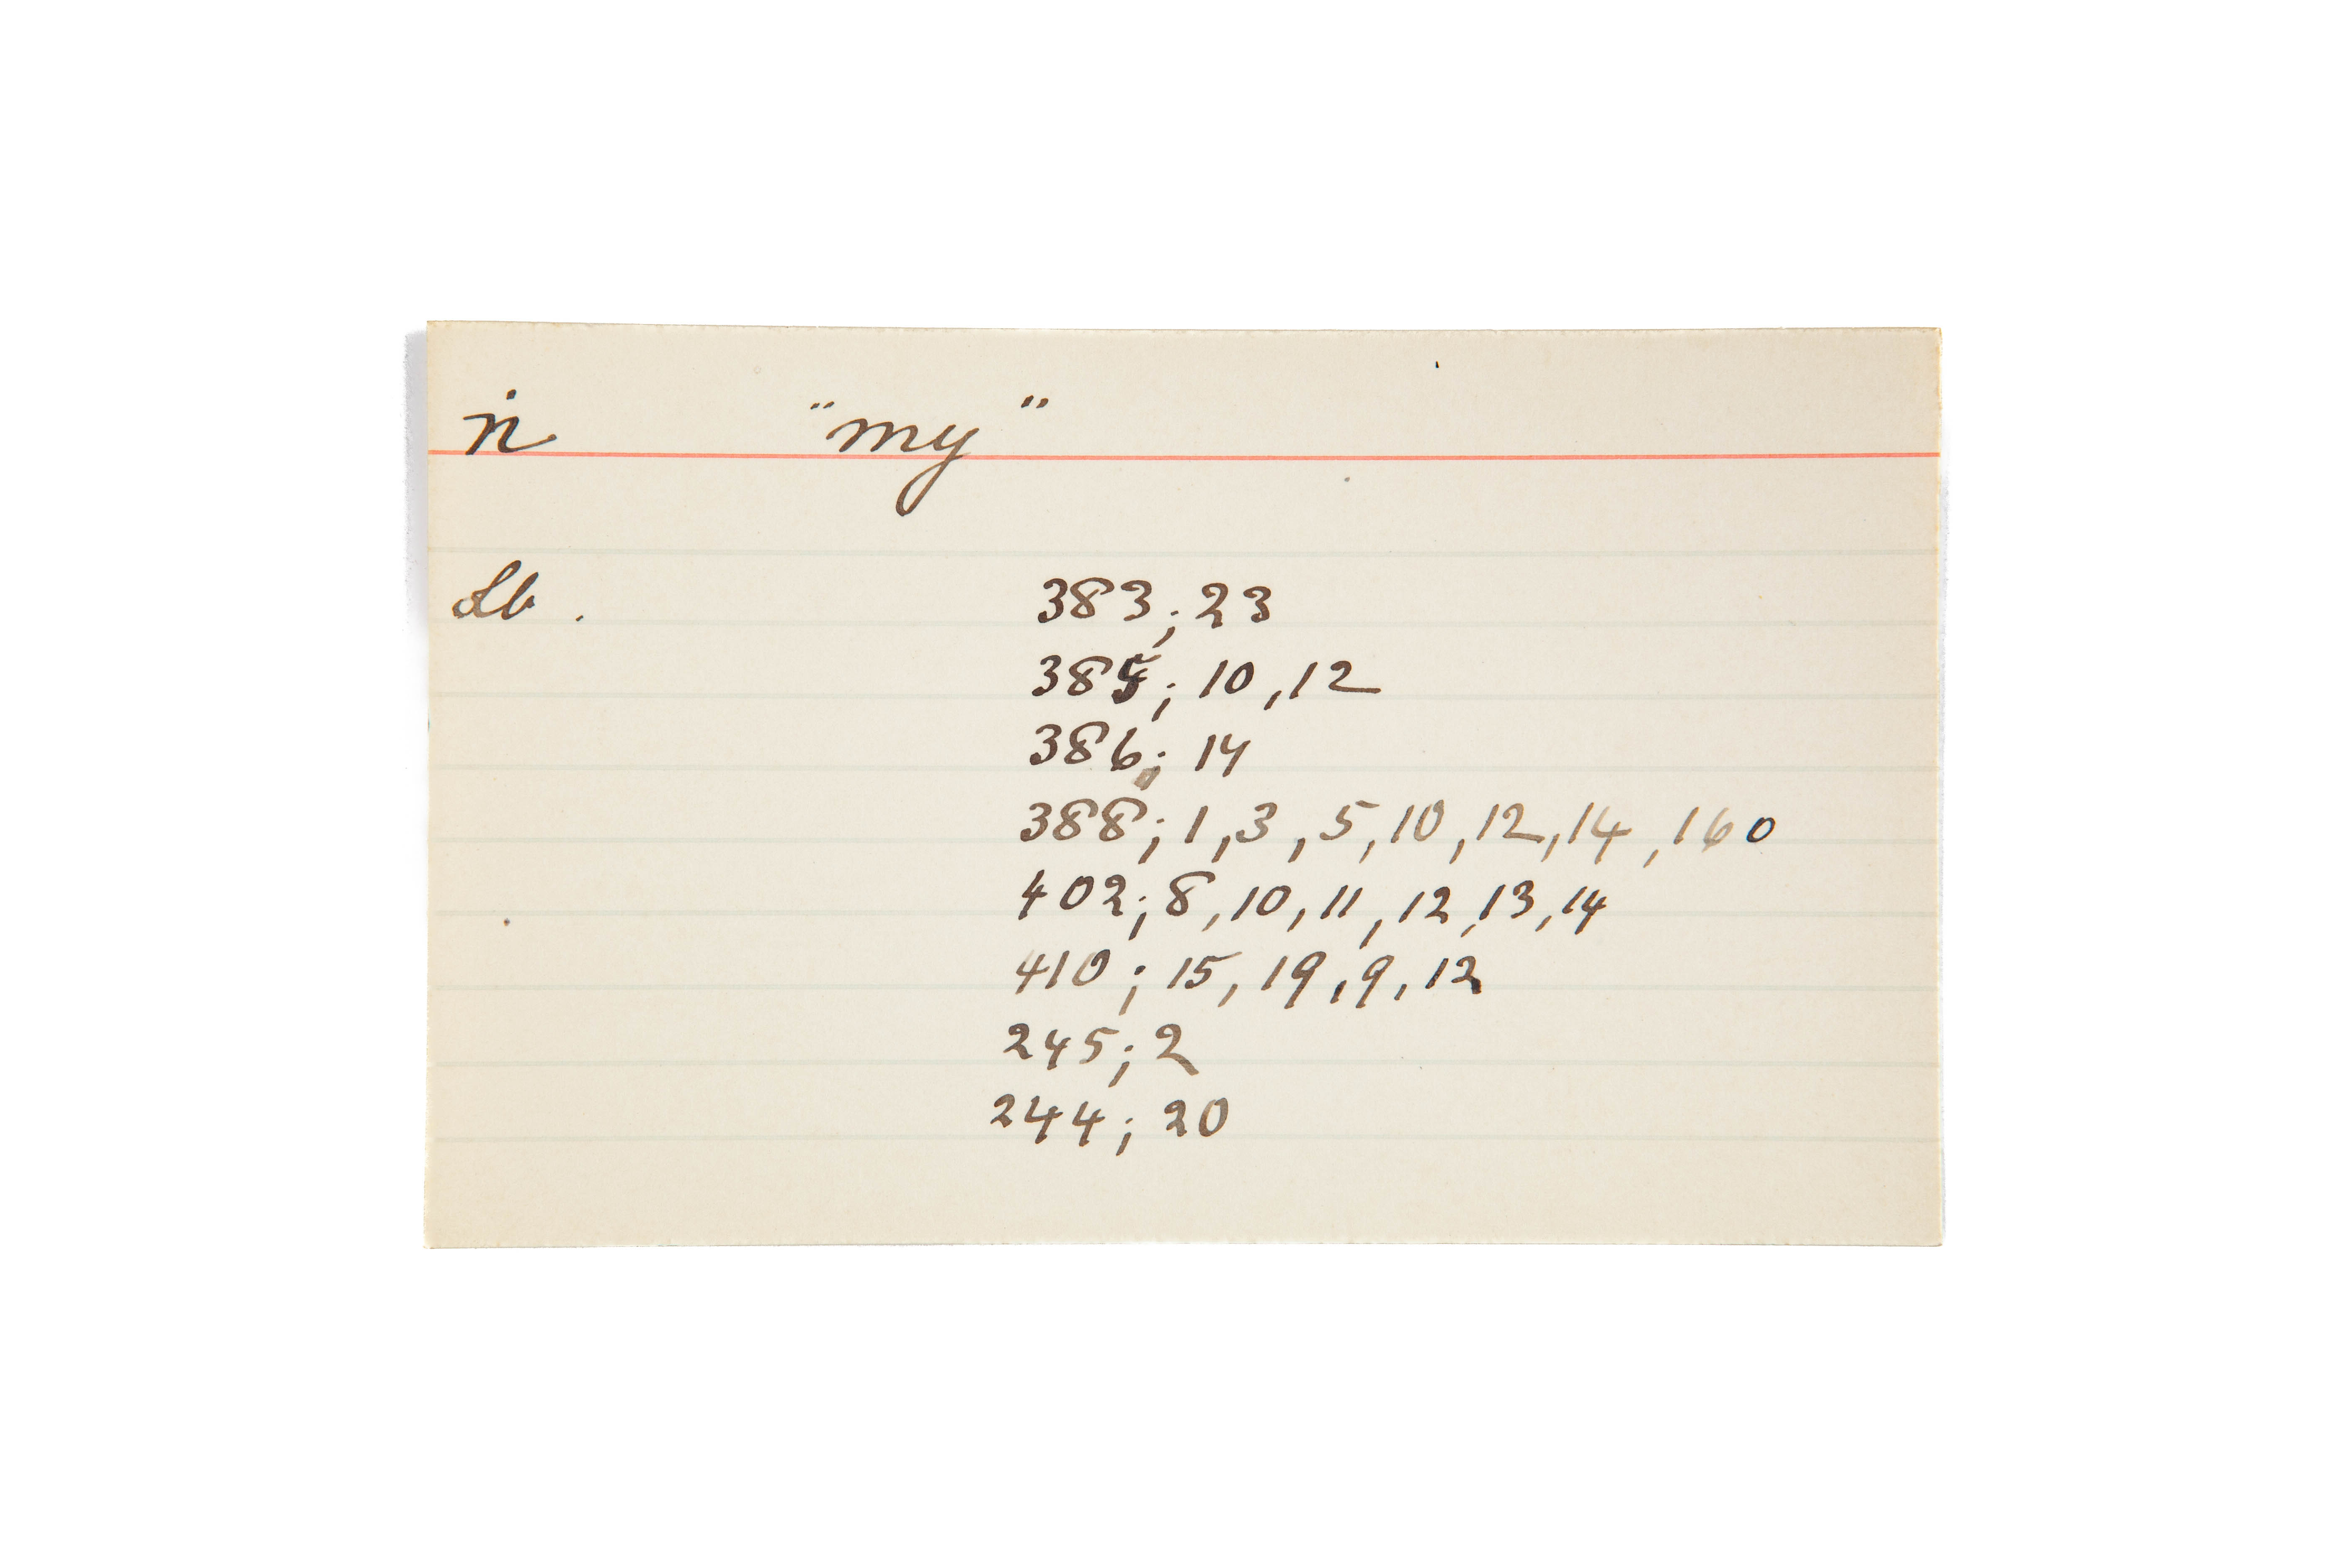 ṅ "my"
Lb. 383; 23
385; 10, 12
386; 14
388; 1, 3, 5, 10, 12, 14, 160
402; 8, 10, 11, 12, 13, 14
410; 15, 19, 9, 12
245; 2
244; 20